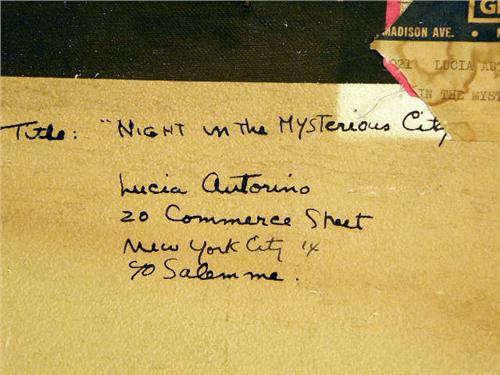 G
MADISON AVE. •
021 LUCIA AUT
IN THE MYST
Title: "NIGHT in the MYSTERIOUS City
Lucia Autorino
20 Commerce Street
New York City 14
c/o Salemme.